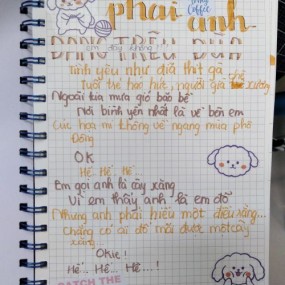 phải anh
Coffee
ĐANG TRÊU ĐÙA
em đây không
Tình yêu như đĩa thịt gà
Tuổi trẻ học hút, người già thế xương
Ngoài kia mưa gió bão bể
Nơi bình yên nhất là về bên em
Cúc hoạ mi không về ngang mùa phố
Đông
OK
Hề Hề Hề
Em gọi anh là cây xăng
Vì em thấy anh là em đổ
Nhưng anh phải hiểu một điều rằng...
Chẳng có ai đổ mãi được một cây
xăng...
Okie!
Hề... Hề... Hề...!
CATCH THE